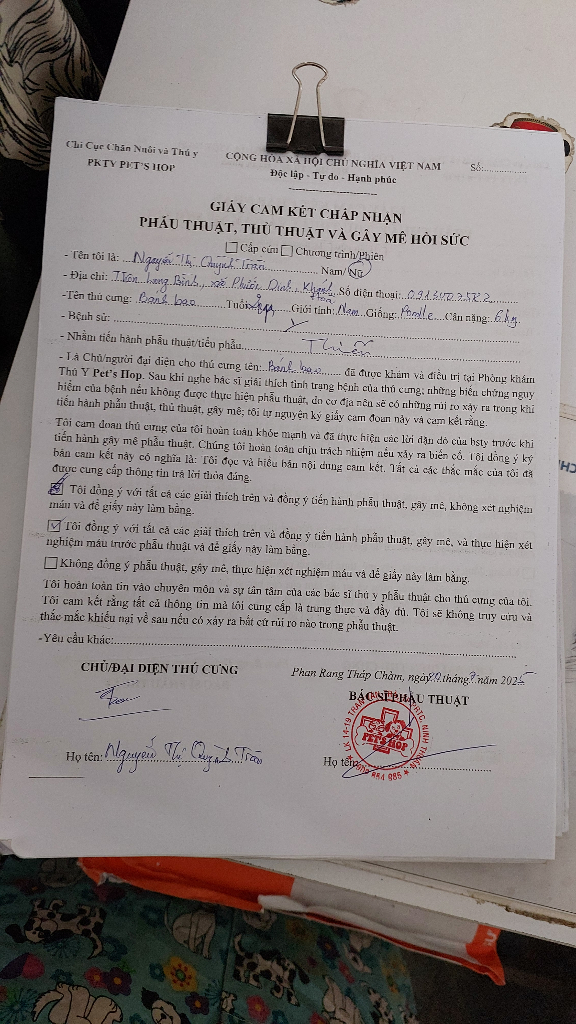 Chi Cục Chăn Nuôi và Thú y
PKTY PET'S HOP
CỘNG HÒA XÃ HỘI CHỦ NGHĨA VIỆT NAM
Độc lập - Tự do - Hạnh phúc
Số:................
GIẤY CAM KẾT CHẤP NHẬN
PHẪU THUẬT, THỦ THUẬT VÀ GÂY MÊ HỒI SỨC
Cấp cứu Chương trình/Phiên
- Tên tôi là: Nguyễn Thị Quỳnh Trân Nam/ Nữ
- Địa chỉ: Long Bình, Khánh Hòa Số điện thoại:
-Tên thú cưng: Bánh bao Tuổi: Giới tính: Nam Giống: Poodle Cân nặng: 6kg
- Bệnh sử:
- Nhằm tiến hành phẫu thuật/tiểu phẫu: Thiến
- Là Chủ/người đại diện cho thú cưng tên: Bánh bao đã được khám và điều trị tại Phòng khám
Thú Y Pet's Hop. Sau khi nghe bác sĩ giải thích tình trạng bệnh của thú cưng; những biến chứng nguy
hiểm của bệnh nếu không được thực hiện phẫu thuật, do cơ địa nên sẽ có những rủi ro xảy ra trong khi
tiến hành phẫu thuật, thủ thuật, gây mê; tôi tự nguyện ký giấy cam đoan này và cam kết rằng.
Tôi cam đoan thú cưng của tôi hoàn toàn khỏe mạnh và đã thực hiện các lời dặn dò của bsty trước khi
tiến hành gây mê phẫu thuật. Chúng tôi hoàn toàn chịu trách nhiệm nếu xảy ra biến cố. Tôi đồng ý ký
bản cam kết này có nghĩa là: Tôi đọc và hiểu bản nội dung cam kết. Tất cả các thắc mắc của tôi đã
được cung cấp thông tin trả lời thỏa đáng.
Tôi đồng ý với tất cả các giải thích trên và đồng ý tiến hành phẫu thuật, gây mê, không xét nghiệm
máu và để giấy này làm bằng.
Tôi đồng ý với tất cả các giải thích trên và đồng ý tiến hành phẫu thuật, gây mê, và thực hiện xét
nghiệm máu trước phẫu thuật và để giấy này làm bằng.
Không đồng ý phẫu thuật, gây mê, thực hiện xét nghiệm máu và để giấy này làm bằng.
Tôi hoàn toàn tin vào chuyên môn và sự tận tâm của các bác sĩ thú y phẫu thuật cho thú cưng của tôi.
Tôi cam kết rằng tất cả thông tin mà tôi cung cấp là trung thực và đầy đủ. Tôi sẽ không truy cứu và
thắc mắc khiếu nại về sau nếu có xảy ra bất cứ rủi ro nào trong phẫu thuật.
-Yêu cầu khác:................
CHỦ/ĐẠI DIỆN THÚ CƯNG
Phan Rang Tháp Chàm, ngày 20 tháng 7 năm 2025
BÁC SĨ PHẪU THUẬT
PET'S HOP
Họ tên: Nguyễn Thị Quỳnh Trân
Họ tên: